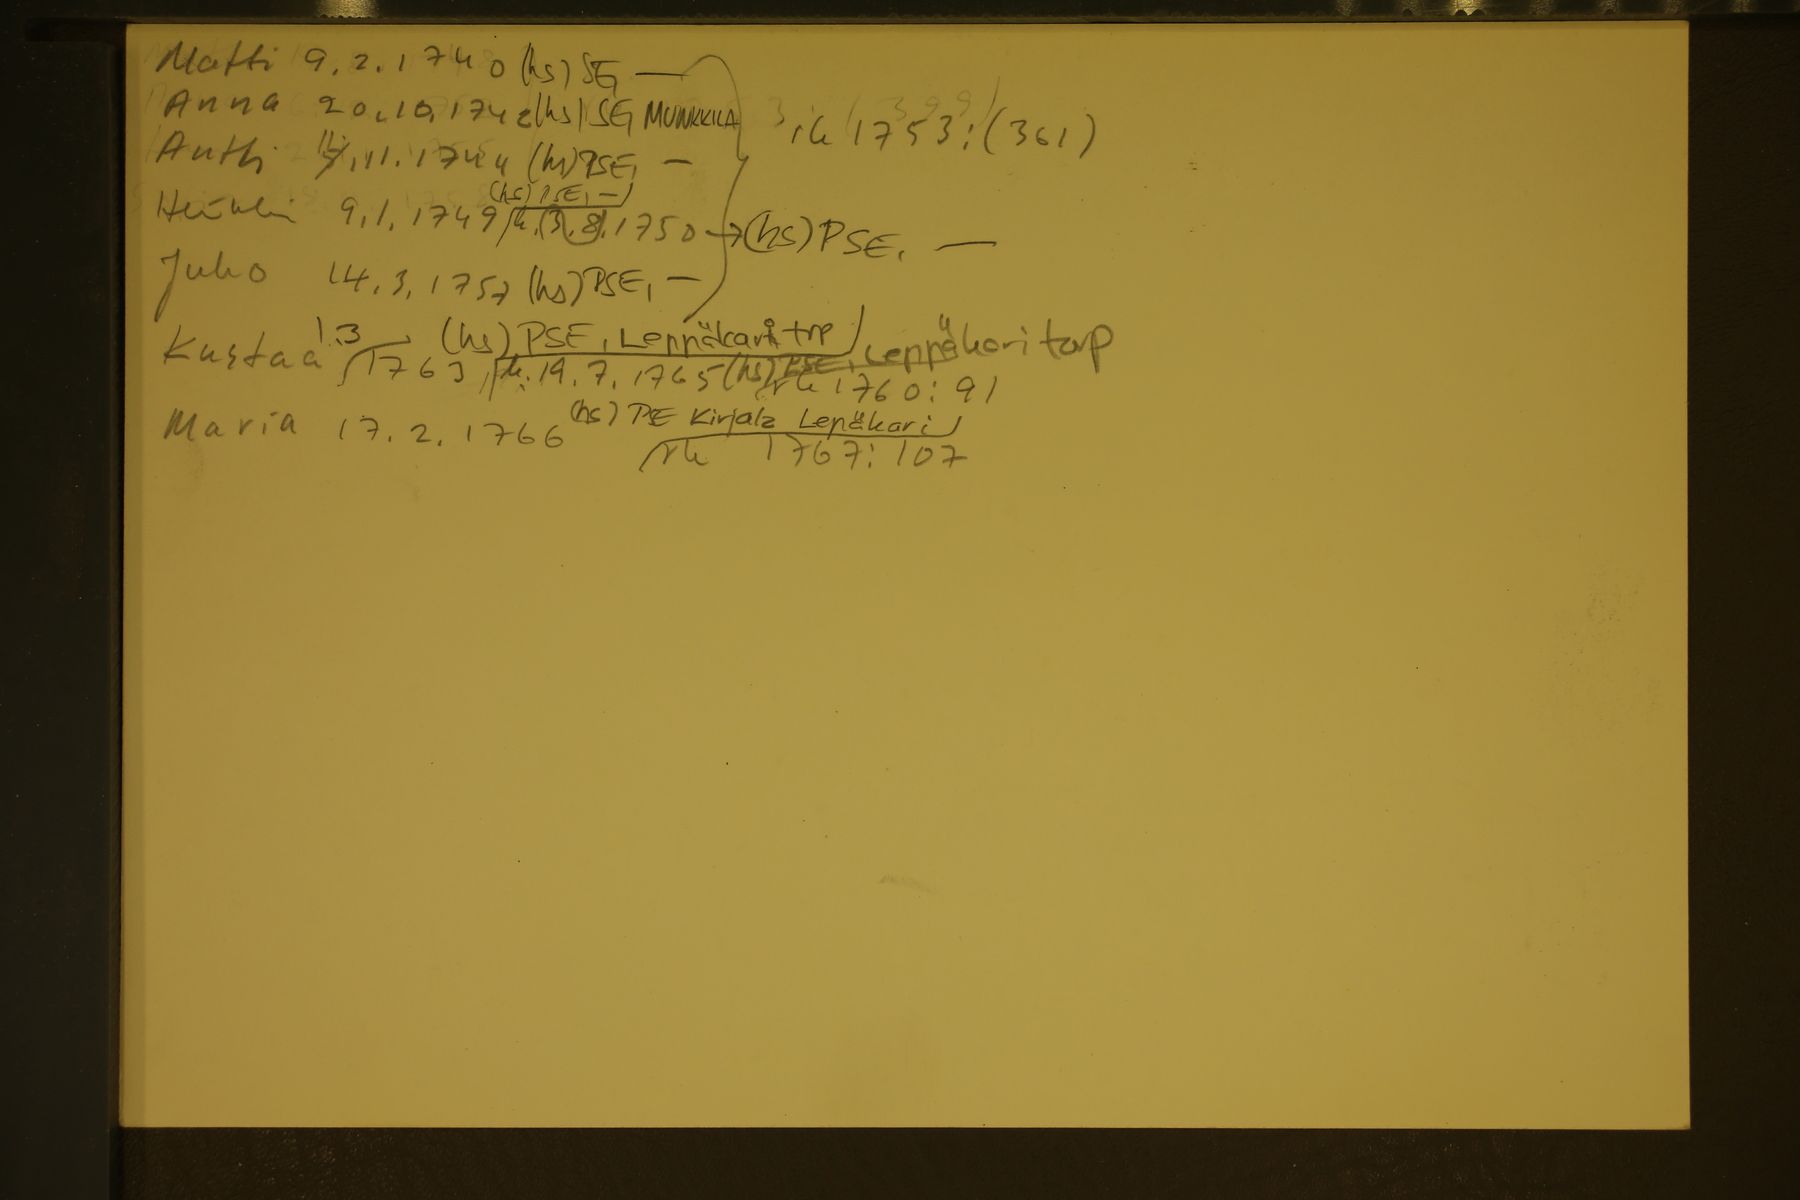 Matti 9.2.1740 (hs) SE, —
Anna 20.10.1742 (hs) SE, MUNKKILA
rk 1753: (361)
Antti 11.1744 (hs) PSE, —
(hs) PSE, —
Heikki 9.1.1749, k. (3.8).1750 → (hs) PSE, —
Juho 14.3.1757 (hs) PSE, —
1.3 (hs) PSE, Leppäkari trp
Kustaa 1763, k. 19.7.1765 (hs) PSE, Leppäkari torp
rk 1760: 91
(hs) PSE Kirjala Lepäkari
Maria 17.2.1766
rk 1767: 107